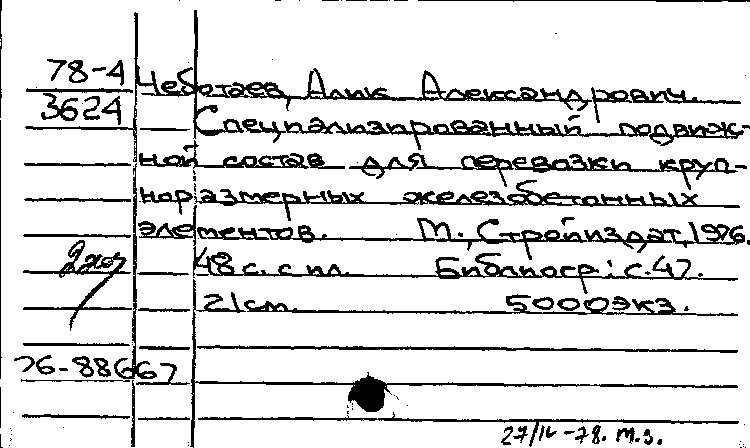 78-4 Чеботаев, Алик Александрович.
3624 Специализированный подвиж-
ной состав для перевозки круп-
норазмерных железобетонных
элементов. М., Стройиздат, 1976.
48 с. с ил. Библиогр.: с. 47.
21 см. 5000 экз.
76-88667
27/IV-78. М.З.